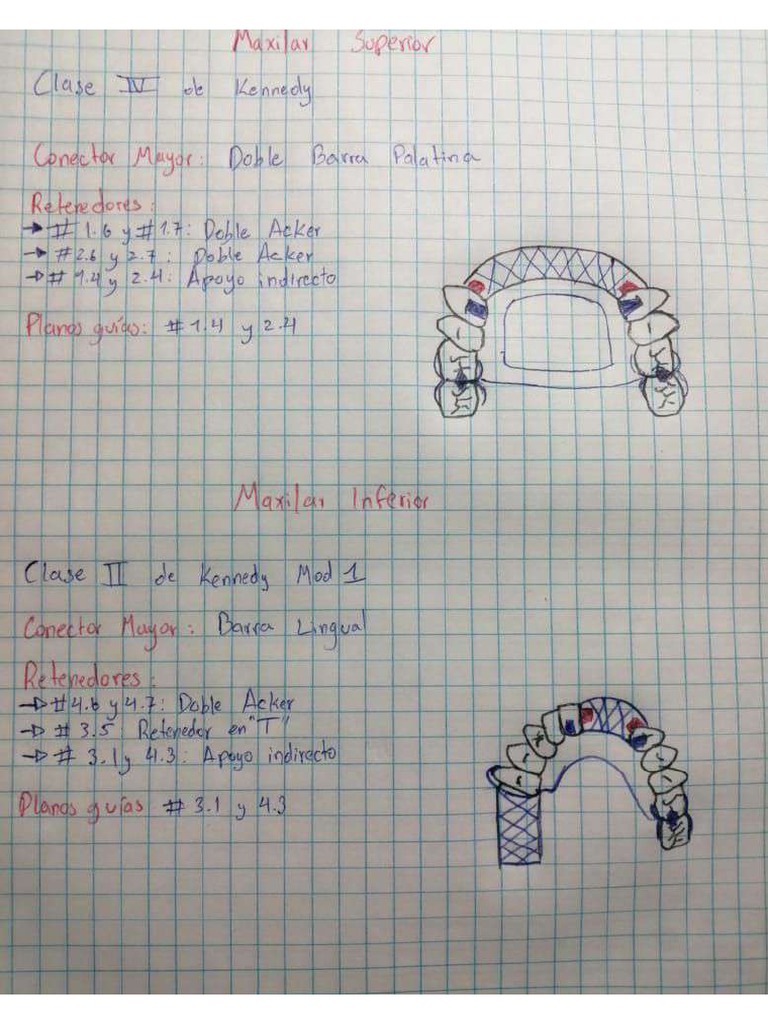 Maxilar Superior
Clase IV de Kennedy
Conector Mayor: Doble Barra Palatina
Retenedores:
→ # 1.6 y # 1.7: Doble Acker
→ #2.6 y 2.7: Doble Acker
→ # 1.4 y 2.4: Apoyo indirecto
Planos guías: # 1.4 y 2.4
Maxilar Inferior
Clase II de Kennedy Mod 1
Conector Mayor: Barra Lingual
Retenedores:
→ #4.6 y 4.7: Doble Acker
→ # 3.5 Retenedor en "T"
→ # 3.1 y 4.3: Apoyo indirecto
Planos guías # 3.1 y 4.3